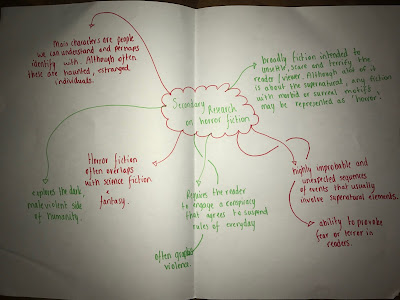 Main characters are people
we can understand and perhaps
identify with. Although often
these are haunted, estranged
individuals.
broadly fiction intended to
unsettle, scare and terrify the
reader/viewer. Although alot of it
is about the supernatural, any fiction
with morbid or surreal motifs
may be represented as 'horror'.
Secondary
Research
on horror fiction
Horror fiction
often overlaps
with science fiction
fantasy.
explores the dark,
malevolent side
of humanity.
Requires the reader
to engage a conspiracy
that agrees to suspend
rules of everyday
often graphic
violence.
highly improbable and
unexpected sequences
of events that usually
involve supernatural elements.
ability to provoke
fear or terror in
readers.